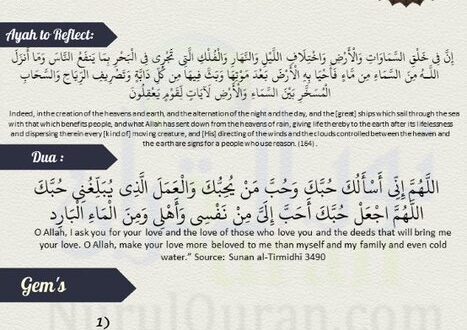 Ayah to Reflect:
إِنَّ فِي خَلْقِ السَّمَاوَاتِ وَالْأَرْضِ وَاخْتِلَافِ اللَّيْلِ وَالنَّهَارِ وَالْفُلْكِ الَّتِي تَجْرِي فِي الْبَحْرِ بِمَا يَنفَعُ النَّاسَ وَمَا أَنزَلَ
اللَّـهُ مِنَ السَّمَاءِ مِن مَّاءٍ فَأَحْيَا بِهِ الْأَرْضَ بَعْدَ مَوْتِهَا وَبَثَّ فِيهَا مِن كُلِّ دَابَّةٍ وَتَصْرِيفِ الرِّيَاحِ وَالسَّحَابِ
الْمُسَخَّرِ بَيْنَ السَّمَاءِ وَالْأَرْضِ لَآيَاتٍ لِّقَوْمٍ يَعْقِلُونَ
Indeed, in the creation of the heavens and earth, and the alternation of the night and the day, and the [great] ships which sail through the sea
with that which benefits people, and what Allah has sent down from the heavens of rain, giving life thereby to the earth after its lifelessness
and dispersing therein every [kind of] moving creature, and [His] directing of the winds and the clouds controlled between the heaven and
the earth are signs for a people who use reason. (164) .
Dua :
اللَّهُمَّ إِنِّي أَسْأَلُكَ حُبَّكَ وَحُبَّ مَنْ يُحِبُّكَ وَالْعَمَلَ الَّذِي يُبَلِّغُنِي حُبَّكَ
اللَّهُمَّ اجْعَلْ حُبَّكَ أَحَبَّ إِلَيَّ مِنْ نَفْسِي وَأَهْلِي وَمِنَ الْمَاءِ الْبَارِدِ
O Allah, I ask you for your love and the love of those who love you and the deeds that will bring me
your love. O Allah, make your love more beloved to me than myself and my family and even cold
water.” Source: Sunan al-Tirmidhī 3490
Gem's
NurulQuran.com
1)